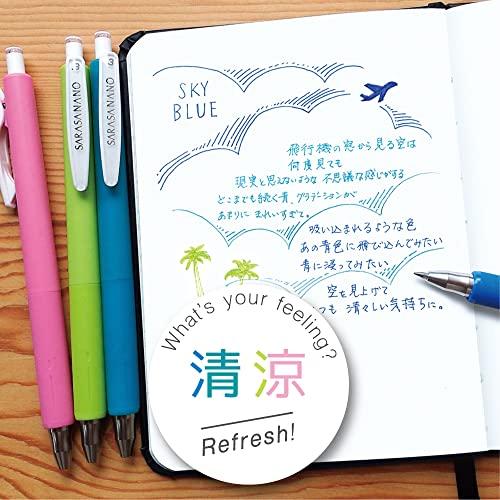 .3 SARASA NANO
.3 SARASA NANO
SKY
BLUE
飛行機の窓から見る空は
何度見ても
現実と思えないような 不思議な感じがする
どこまでも続く青、グラデーションが
あまりに きれいすぎて。
吸い込まれるような色
あの青色に飛び込んでみたい
青に浸ってみたい
空を見上げて
も 清々しい気持ちに。
What's your feeling?
清涼
Refresh!